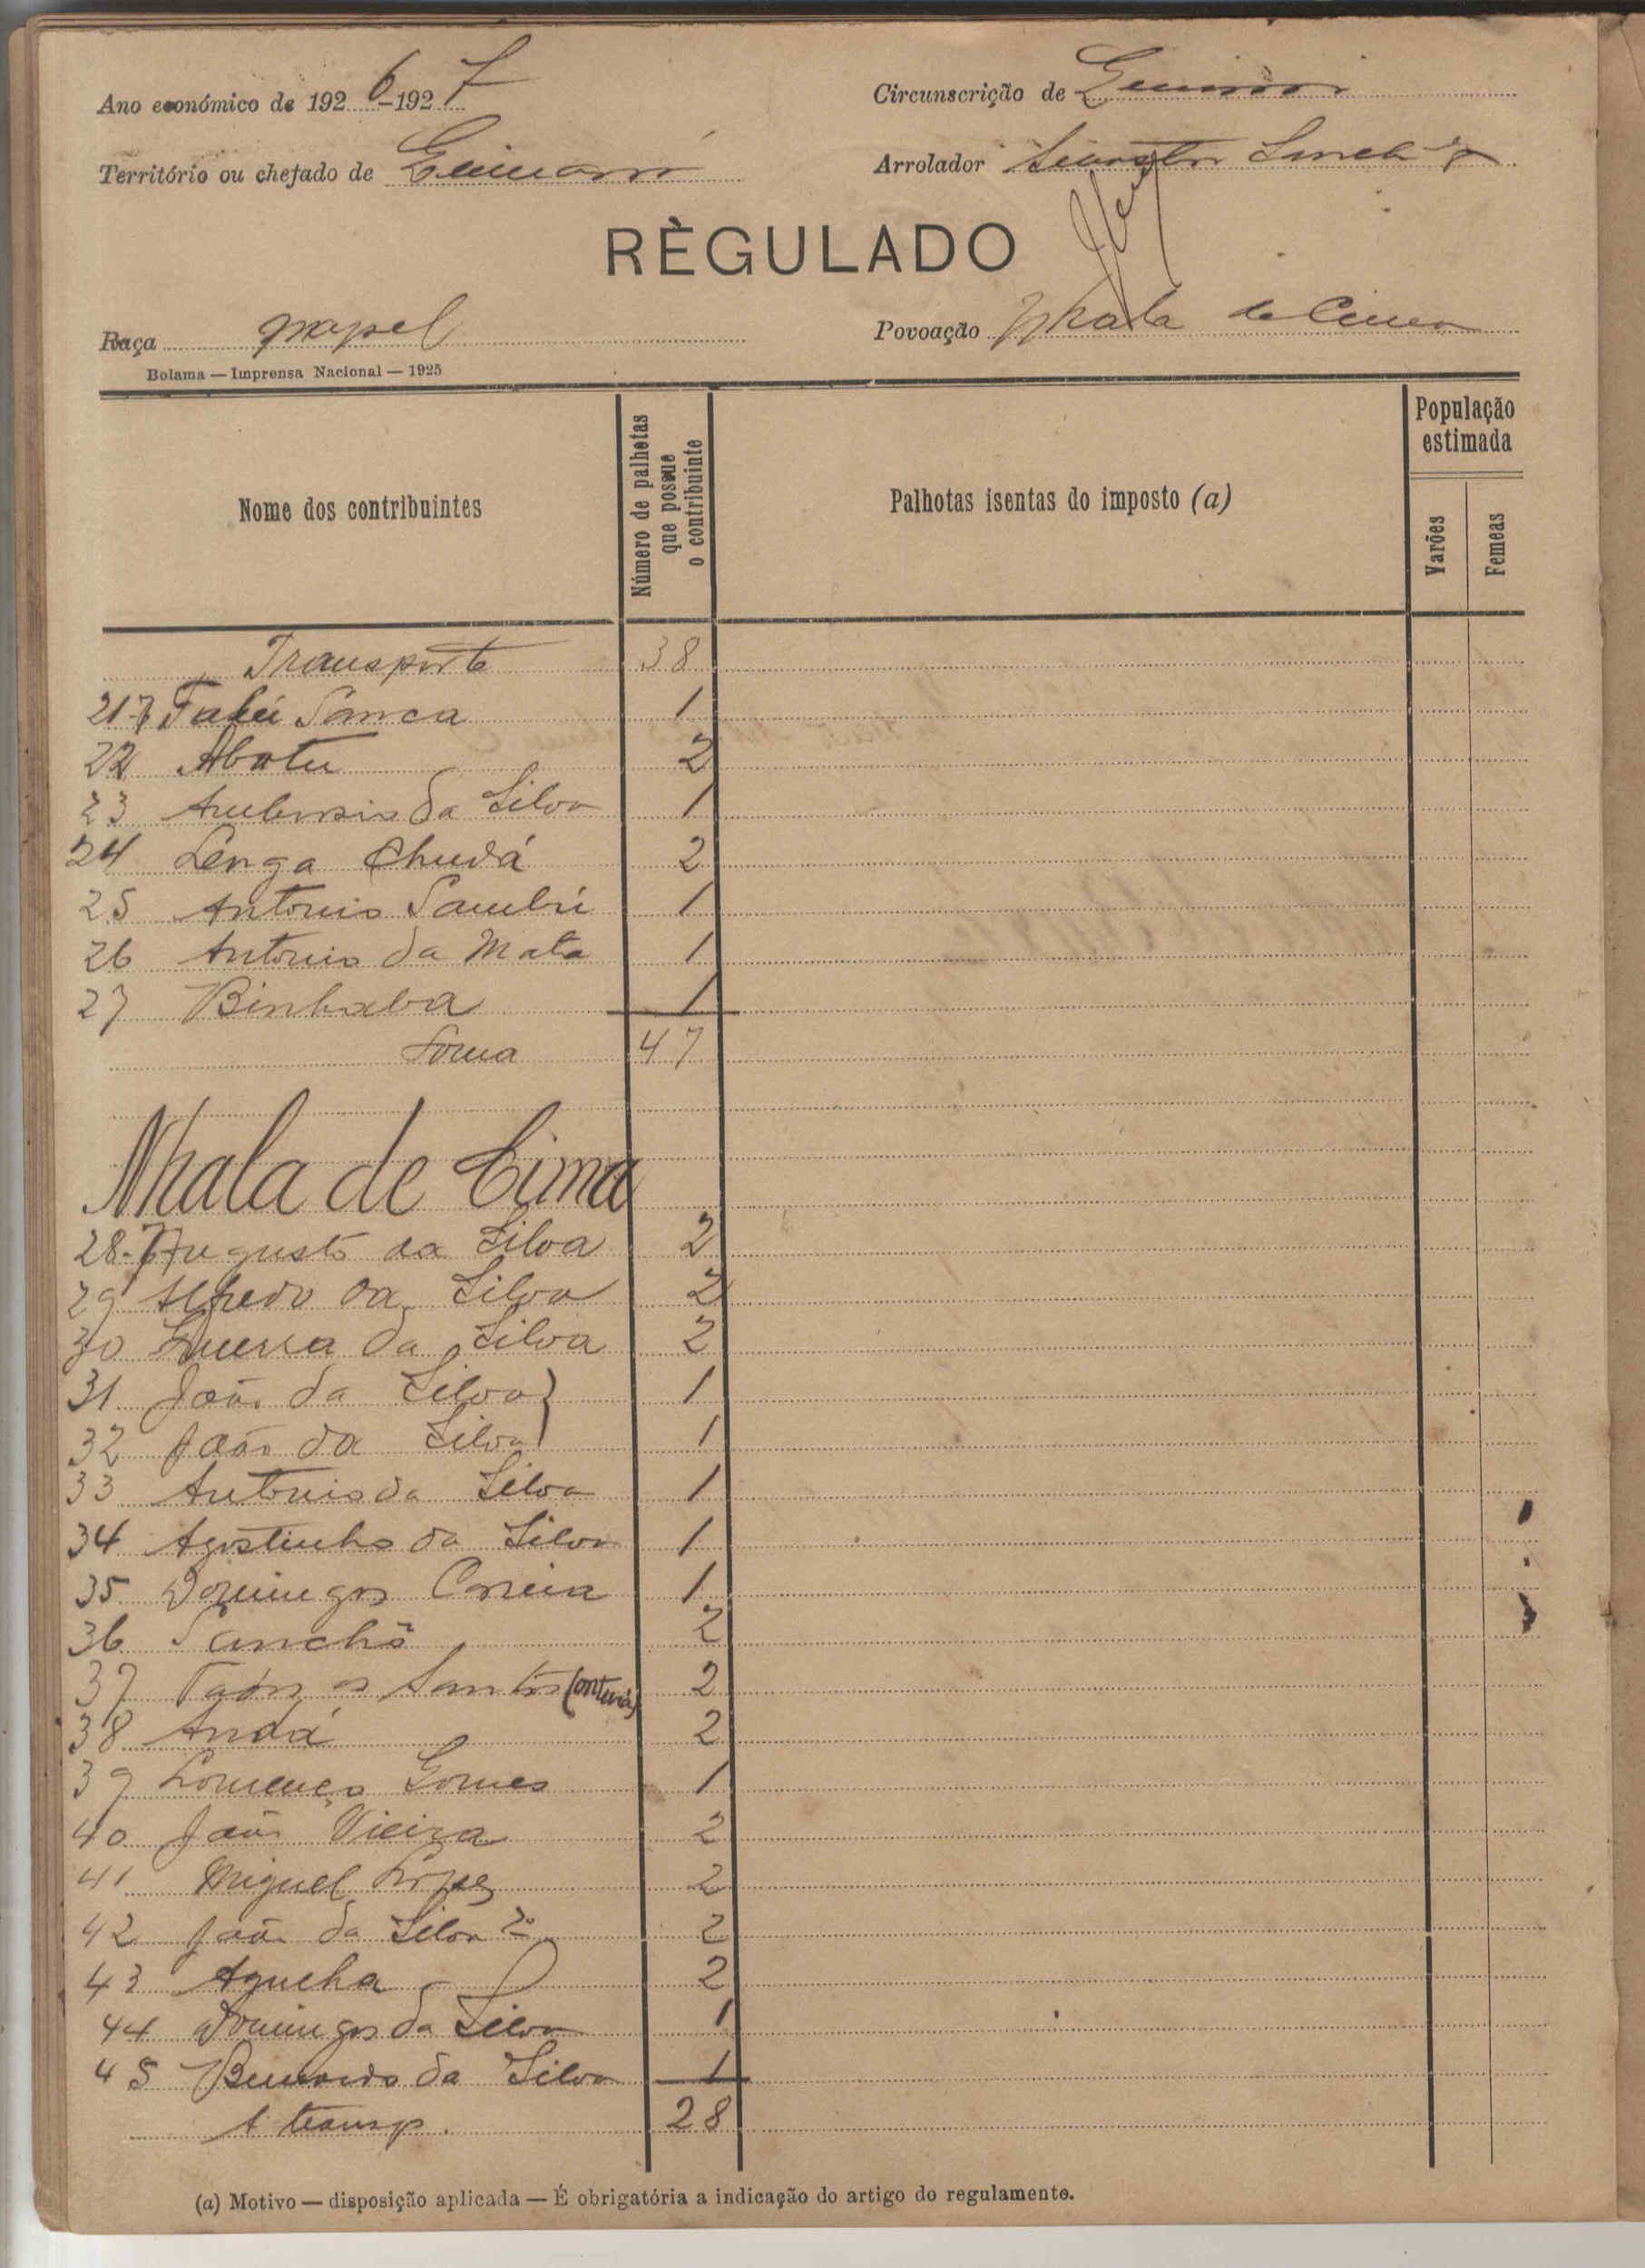 Ano económico de 1926-1927 Circunscrição de
Território ou chefado de Arrolador
RÈGULADO
Raça papel Povoação Nhala de Cima
Bolama — Imprensa Nacional — 1925
Nome dos contribuintes
Número de palhetas que possue o contribuinte
Palhotas isentas do imposto (a)
População estimada
Varões Femeas
Transporte 38
21 Sanca 1
22 Abotu 2
23 da Silva 1
24 Lenga Chudá 2
25 Antonio Sambú 1
26 Antonio da Mata 1
27 Binhaba 1
Soma 47
Nhala de Cima
28 Augusto da Silva 2
29 Alfredo da Silva 2
30 Guerra da Silva 2
31 João da Silva 1
32 João da Silva 1
33 Antonio da Silva 1
34 Agostinho da Silva 1
35 Domingos Correia 1
36 Sanchõ 2
37 Santos 2
38 Andá 2
39 Lourenço Gomes 1
40 João Vieira 2
41 Miguel Lopes 2
42 João da Silva 2º 2
43 Agucha 2
44 Domingos da Silva 1
45 Bernardo da Silva 1
A transp. 28
(a) Motivo — disposição aplicada — É obrigatória a indicação do artigo do regulamento.